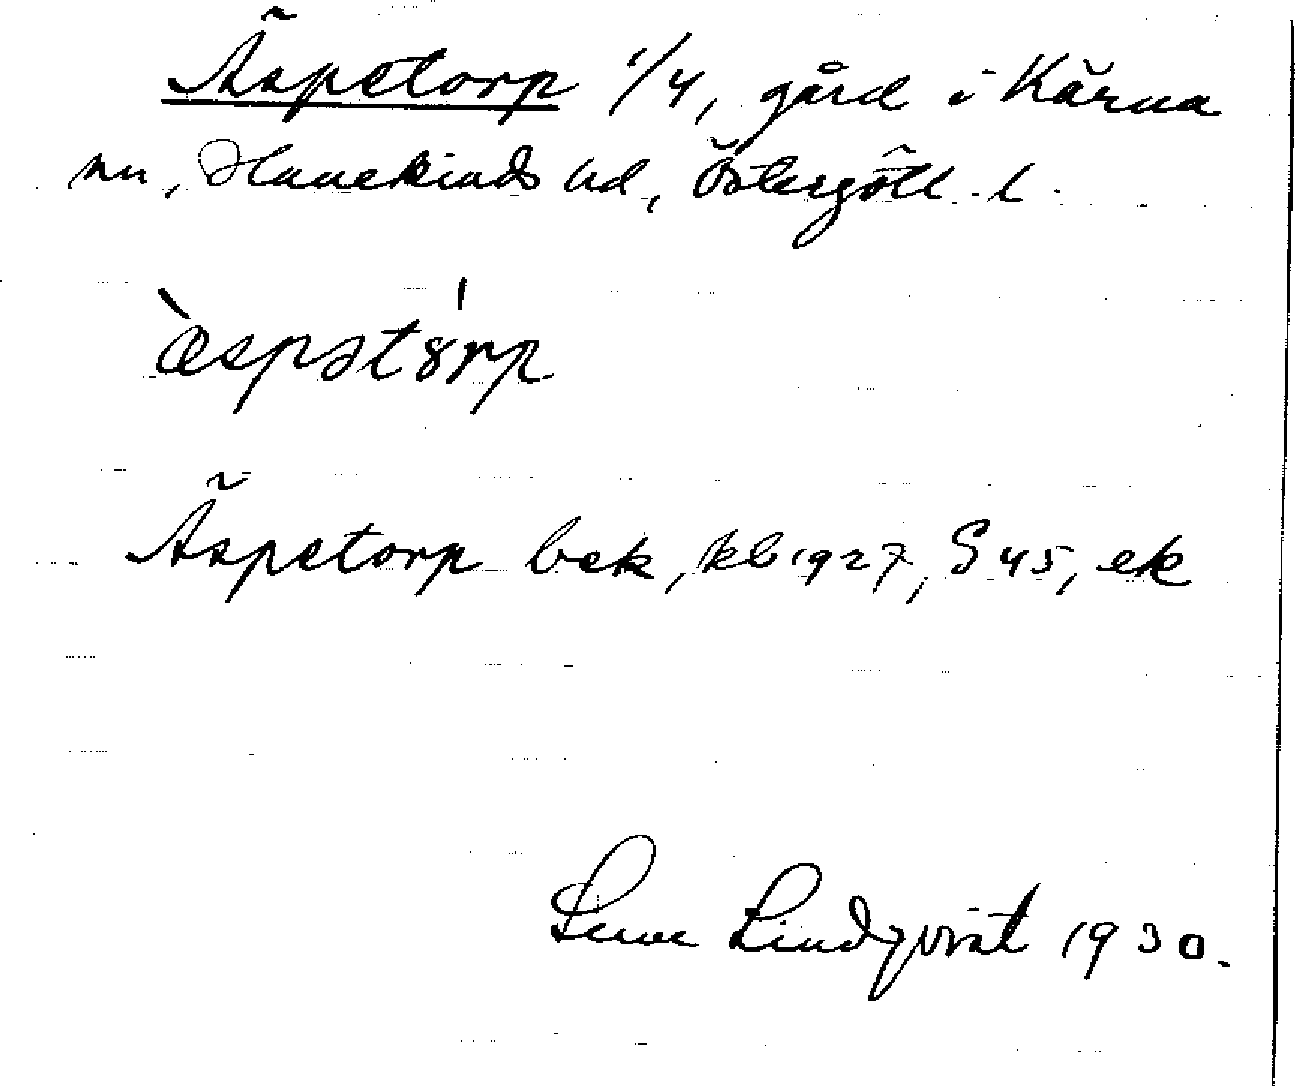 Äspetorp 1/4, gård i Kärna
sn, Hanekinds hd, Östergötl. l.
æ̀spətȣ́rp
Äspetorp bek, kb 1927, G 45, ek
Sune Lindqvist 1930.